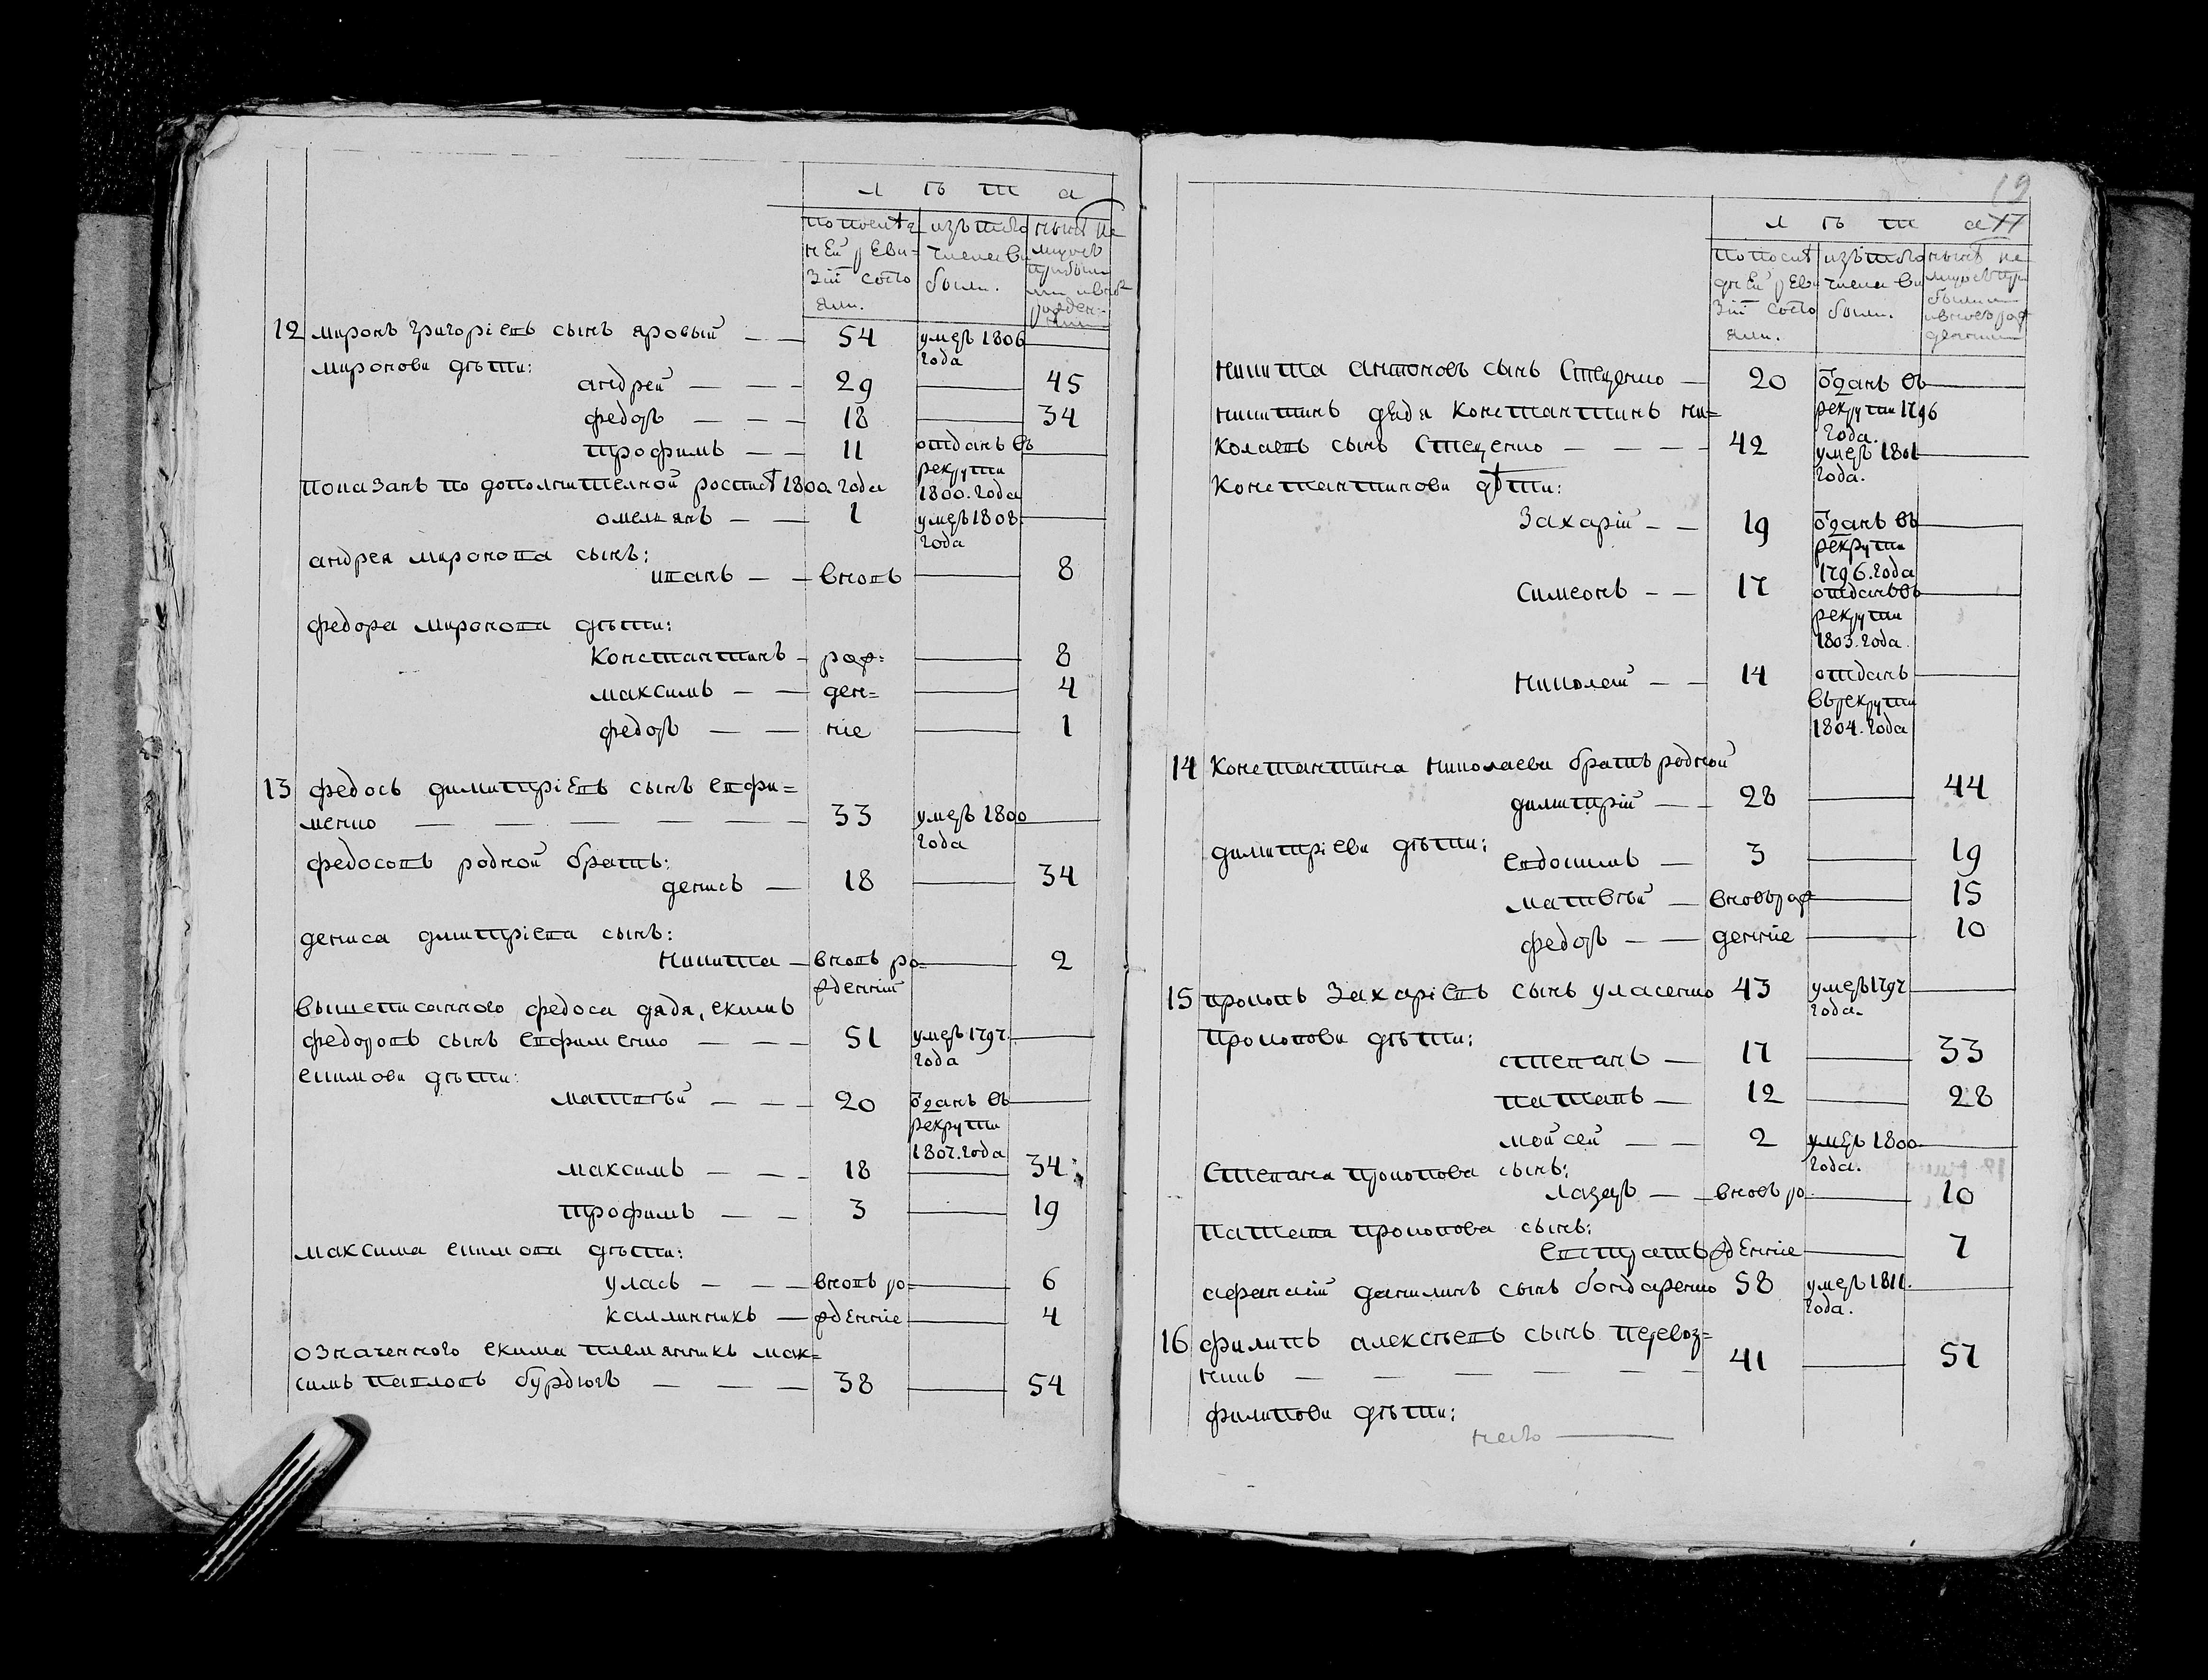 Л ѣ т а
по послѣд
ней реви-
зіи состо
яли.
изъ того
числа вы
были.
нынѣ на
лицо съ
прибыли
ми и вновь
рожден-
ными
12 миронъ григоріевъ сынъ яровый — — 54 умеръ 1806 —
года
мироновы дѣти:
андрей — — — 29 — 45
федоръ — — — 18 — 34
трофимъ — — 11 отданъ въ —
рекруты
показанъ по дополнителной росписѣ 1800 года 1800. года
омелянъ — — 1 умеръ 1808 —
года
андрея миронова сынъ:
иванъ — — вновь — 8
федора миронова дѣти:
константинъ — рож= — 8
максимъ — — ден= — 4
федоръ — — ніе — 1
13 федосъ димитріевъ сынъ ефи=
менко — — — — — — 33 умеръ 1800 —
года
федосовъ родной братъ:
денисъ — 18 — 34
дениса димитріева сынъ:
никита — вновь ро= — 2
жденніи
вышеписанного федоса дядя, екимъ
федоровъ сынъ ефименко — — — 51 умеръ 1797. —
года
екимовы дѣти:
матвѣй — — — 20 оданъ въ —
рекруты
1807. года
максимъ — — — 18 — 34
трофимъ — — 3 — 19
максима екимова дѣти:
уласъ — — — вновь ро= — 6
каллинникъ — жденніе — 4
означенного екима племянникъ мак=
симъ павловъ бурдюгъ — — — 38 — 54
19
Л ѣ т а
по послѣ
дней реви
зіи состо
яли.
изъ того
числа вы
были.
нынѣ на
лицо съ при
былыми
и вновь рож
денными
никита антоновъ сынъ стеценко — 20 оданъ въ —
никитинъ дядя константинъ ни= рекруты 1796
года.
колаевъ сынъ стеценко — — — 42 умеръ 1801 —
года.
константиновы дѣти:
захарій — — 19 оданъ въ —
рекруты
1796. года
симеонъ — — 17 отданъ въ —
рекруты
1803. года.
николай — — 14 отданъ —
въ рекруты
1804. года
14 константина николаевы братъ родной
димитрій — — 28 — 44
димитріевы дѣти:
евдокимъ — 3 — 19
матвѣй — вновь рож — 15
федоръ — — денніе — 10
15 прокопъ захаріевъ сынъ уласенко 43 умеръ 1797 —
года.
прокоповы дѣти:
степанъ — 17 — 33
патапъ — 12 — 28
мойсей — — 2 умеръ 1800 —
года.
степана прокопова сынъ:
лазаръ — — вновь ро — 10
патапа прокопова сынъ:
евстратъ жденніе — 7
афанасій данилинъ сынъ бондаренко 58 умеръ 1811. —
года.
16 филипъ алексѣевъ сынъ перевоз=
никъ — — — — — — 41 — 57
филиповы дѣти: